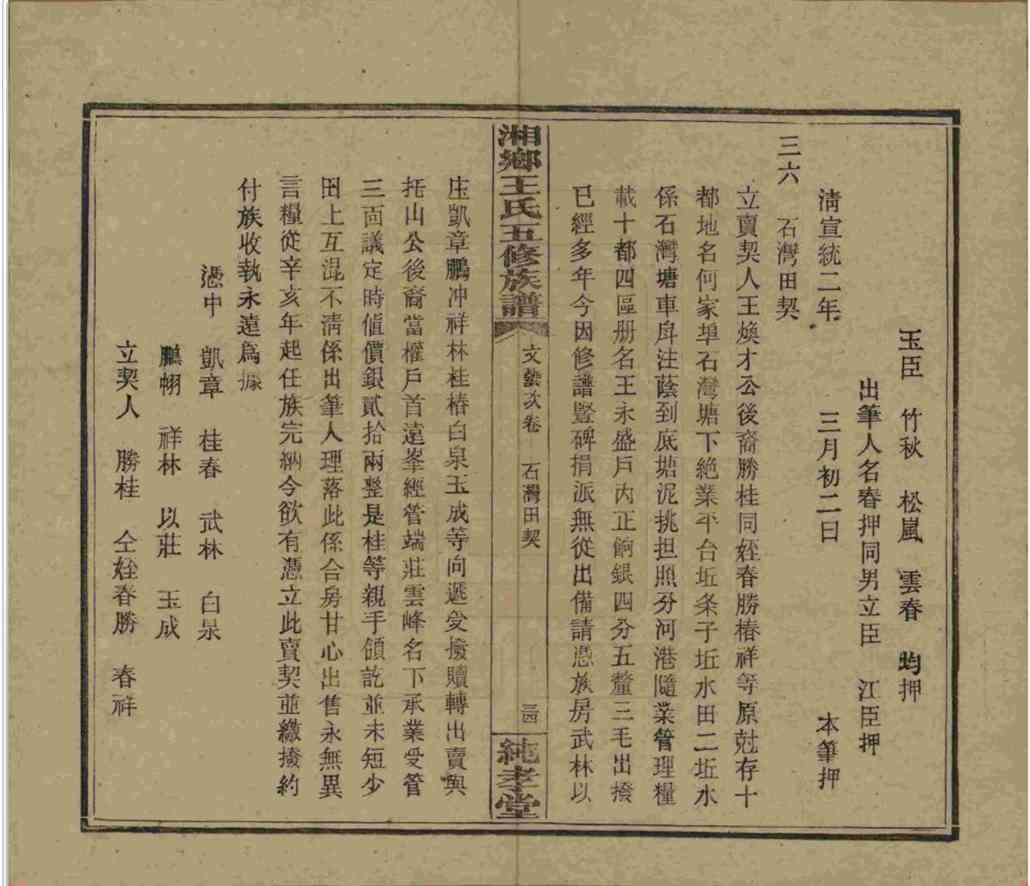 玉臣　竹秋　松嵐　雲春　均押
出筆人名春押同男立臣　江臣押
清宣統二年　三月初二日　本筆押
三六　石灣田契
立賣契人王煥才公後裔勝桂同姪春勝椿祥等原尅存十
都地名何家埠石灣塘下絶業平台坵条子坵水田二坵水
係石灣塘車戽注蔭到底塘泥挑担照分河港隨業管理糧
載十都四區册名王永盛戶內正餉銀四分五釐三毛出撥
已經多年今因修譜豎碑捐派無從出備請憑族房武林以
湘鄉王氏五修族譜　文藝次卷　石灣田契　三四　純孝堂
庄凱章鵬冲祥林桂椿白泉玉成等向遞受撥贖轉出賣與
托山公後裔當權戶首遠峯經管端莊雲峰名下承業受管
三面議定時值價銀貳拾兩整是桂等親手領訖並未短少
田上互混不清係出筆人理落此係合房甘心出售永無異
言糧從辛亥年起任族完納今欲有憑立此賣契並繳撥約
付族收執永遠爲據
憑中　凱章　桂春　武林　白泉
鵬翀　祥林　以莊　玉成
立契人　勝桂　仝姪春勝　春祥